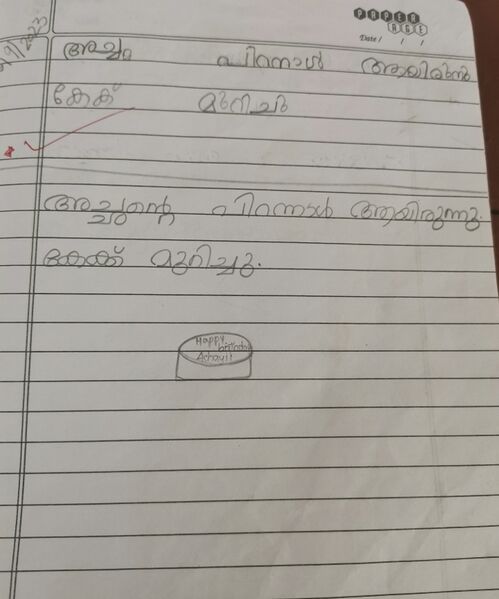 PAPER
AGE
Date / / /
/9/2023
അച്ചു പിറന്നാൾ ആയിരുന്ന
കേക് മുറിച്ച
അച്ചുന്റെ പിറന്നാൾ ആയിരുന്നു.
കേക്ക് മുറിച്ചു.
Happy
birthday
Achavit